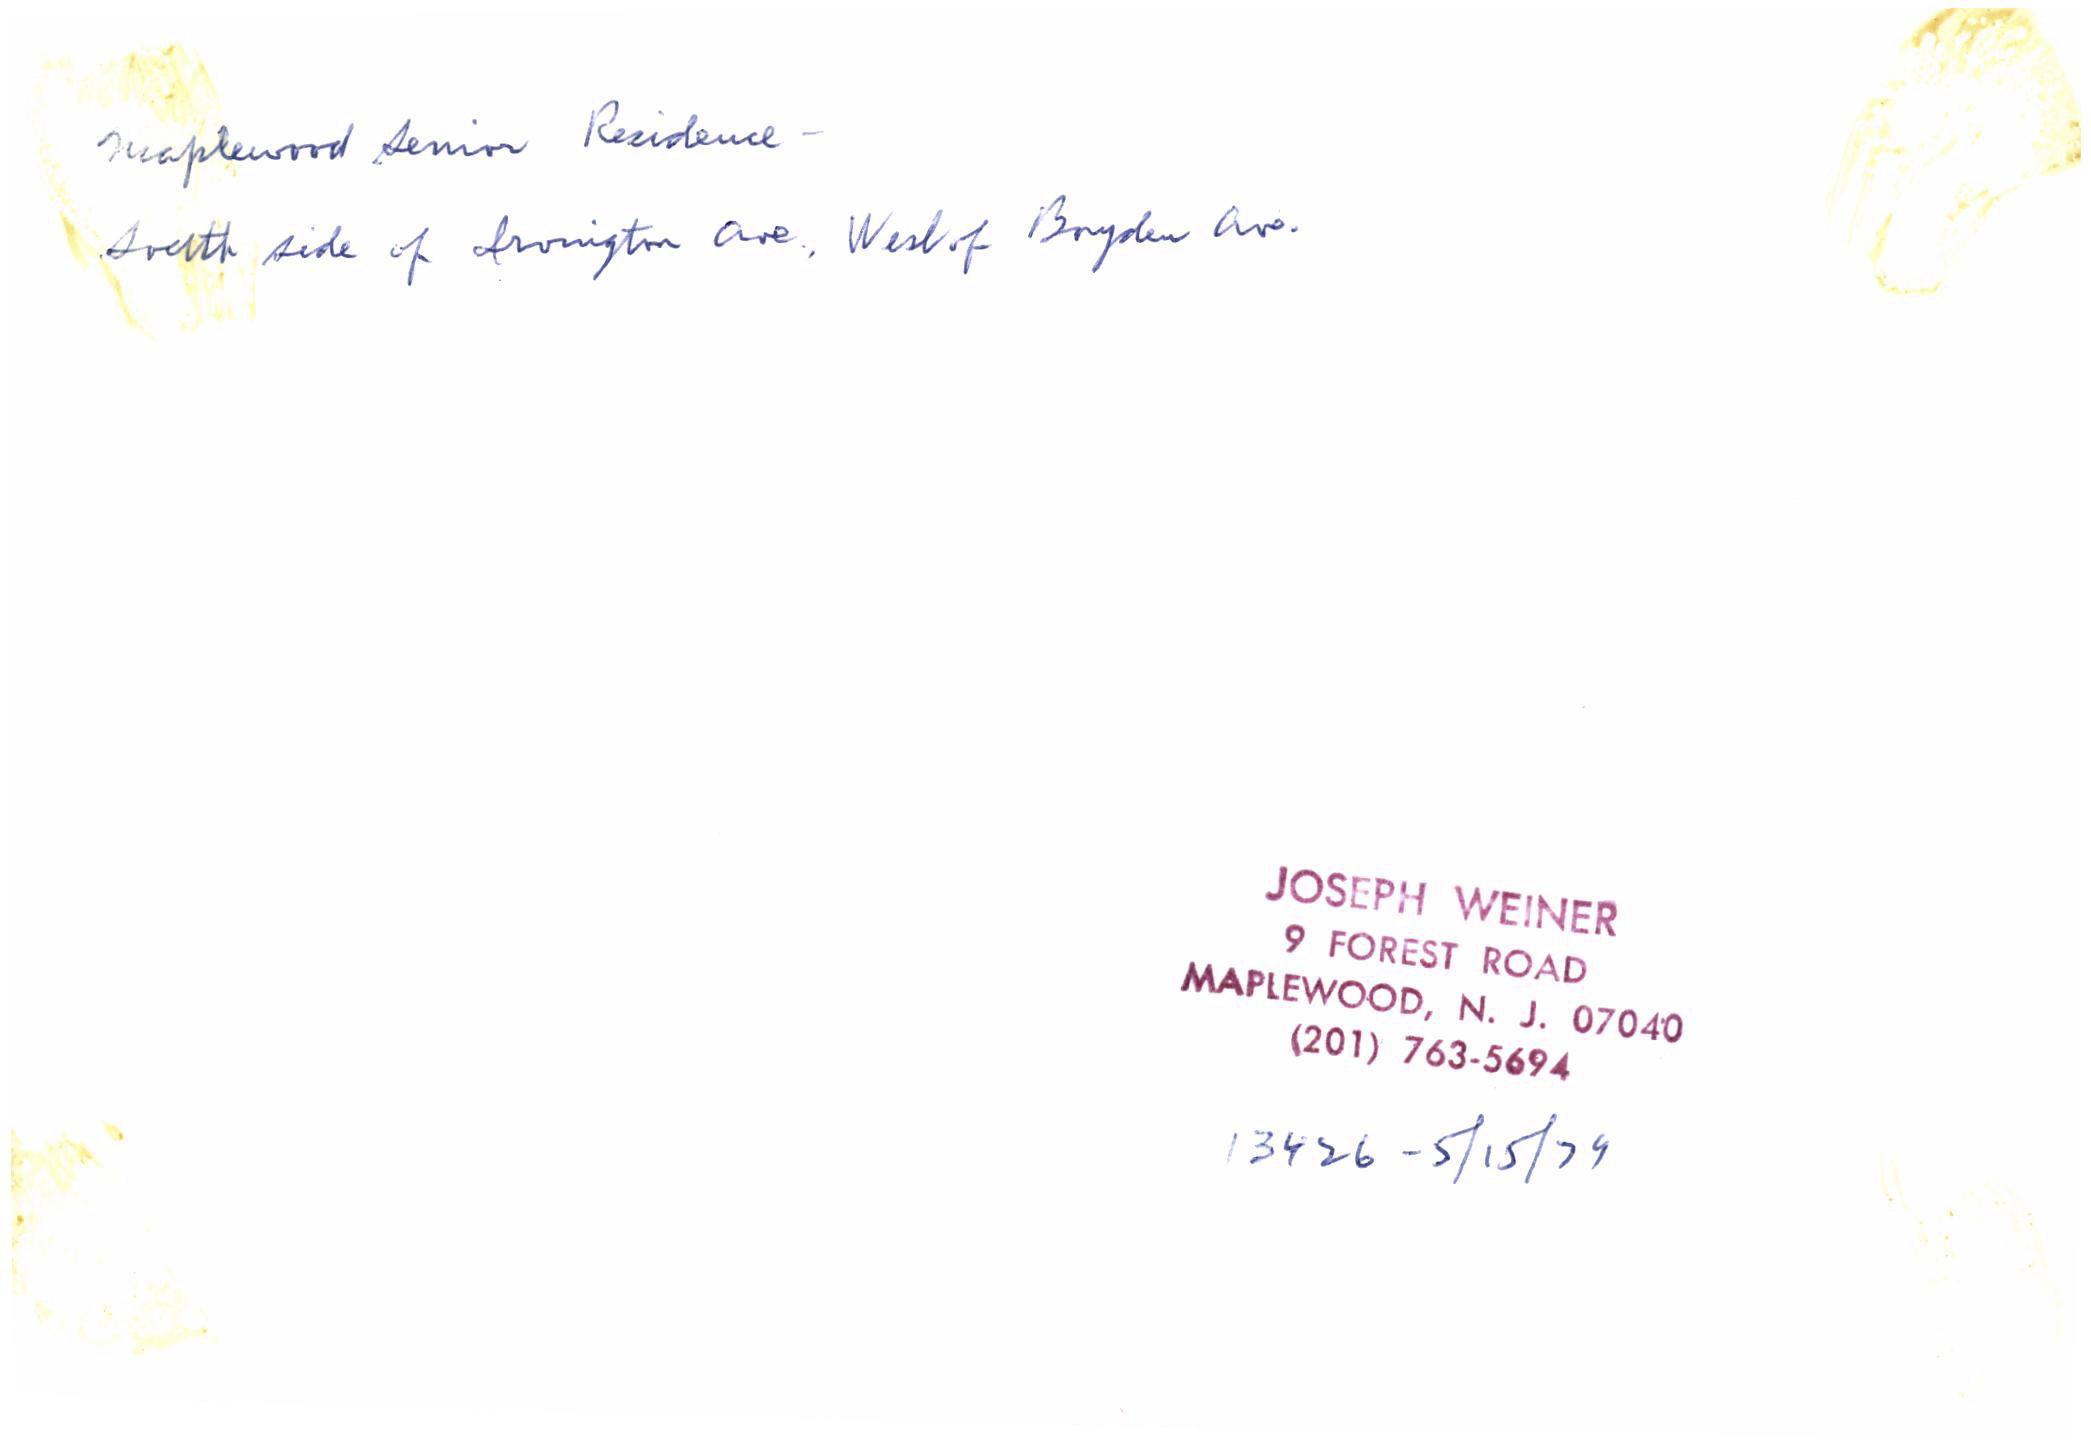 Maplewood Senior Residence -
South side of Irvington Ave., West of Boyden Ave.
JOSEPH WEINER
9 FOREST ROAD
MAPLEWOOD, N. J. 07040
(201) 763-5694
13426 - 5/15/79